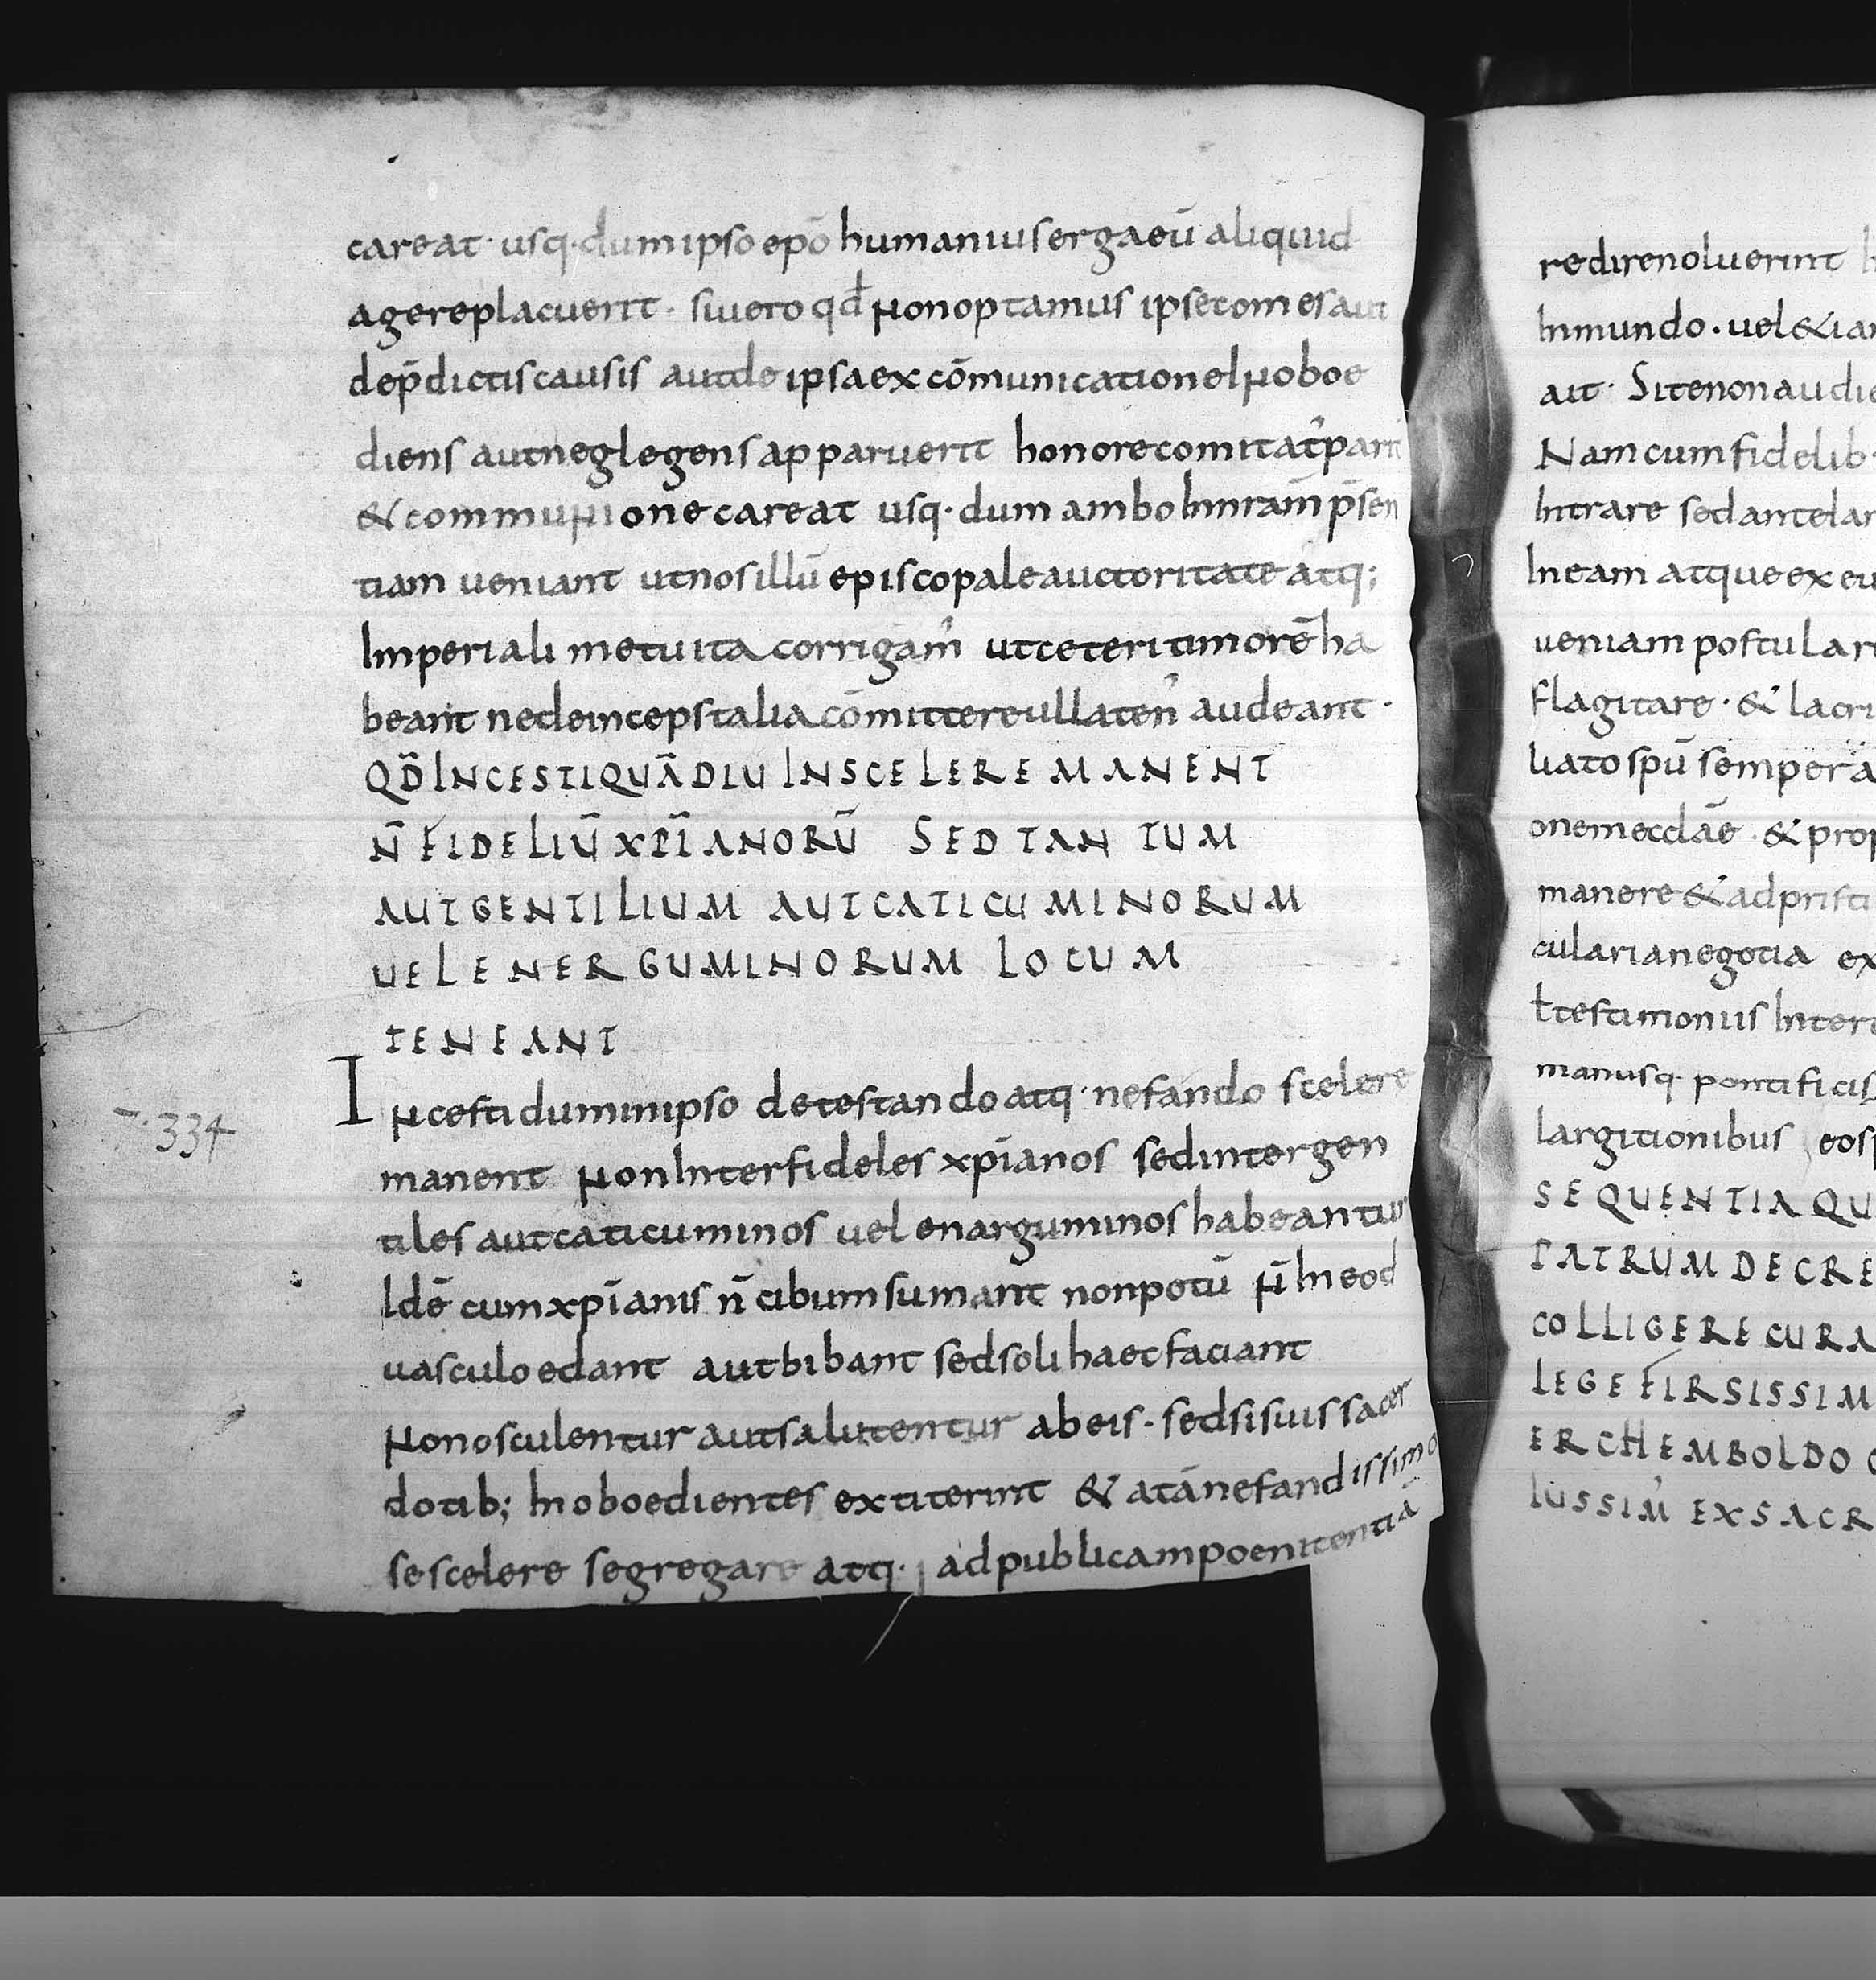 careat· usq· dum ipso epō humanius erga eū aliquid
agere placuerit· si uero qđ non optamus ipse comes aut
de p̄dictis causis aut de ipsa excōmunicatione l noboe
diens aut neglegens apparuerit honore comitat' pari
& communione careat usq· dum ambo In nrām p̄sen
tiam ueniant ut nos illū episcopale auctoritate atq;
Imperiali metu ita corrigam' ut ceteri timorē ha
beant ne deinceps talia cōmittere ullaten' audeant·
QD̄ INCESTI QUĀDIU IN SCELERE MANENT
N̄ FIDELIŪ XP̄IANORŪ SED TANTUM
AUT GENTILIUM AUT CATICUMINORUM
UEL ENERGUMINORUM LOCUM
TENEANT
Incesti dum in ipso detestando atq· nefando scelere
manent non Inter fideles xp̄ianos sed inter gen
tiles aut caticuminos uel enarguminos habeantur
Idē cum xp̄ianis n̄ cibum sumant non potū n̄ In eod
uasculo edant aut bibant sed soli haec faciant
non osculentur aut salutentur ab eis· sed si suis sacer
dotib; In oboedientes extiterint & a tā nefandissimo
se scelere segregare atq· ad publicam poenitentiā
7·334
redire noluerint
Inmundo· uel &iam
ait· Si te non audie
Nam cum fidelib·
Intrare sed ante
In eam atque ex eu
ueniam postulare
flagitare· & lacri
liato spū semper
onem eccl̄ae· & prop
manere & ad pristi
cularia negotia ex
ł testimoniis Inter
manusq· pontificis
largitionibus eos
SEQUENTIA QU
PATRUM DECRE
COLLIGERE CURA
LEGE FIRSISSIM
ERCHEMBOLDO
IUSSIM' EX SACR